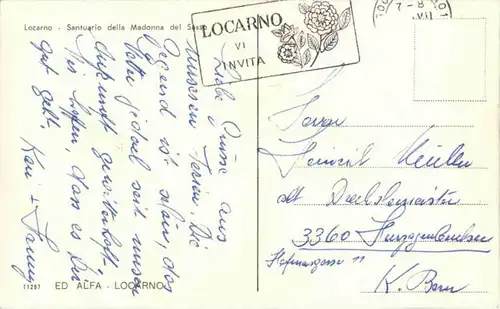 Locarno - Santuario della Madonna del Sasso
LOCARNO
VI
INVITA
7-8
VII
Liebe Grüsse aus
unseren Ferien. Die
Gegend ist schön, das
Wetter jedoch seit unser
Ankunft gewitterhaft.
Wir hoffen, dass es Dir
gut geht.
Kari + Fanny
11287 ED ALFA - LOCARNO
Heinrich
alt Drechslermeister
3360 Herzogenbuchsee
Hofmattgasse 11
K. Bern